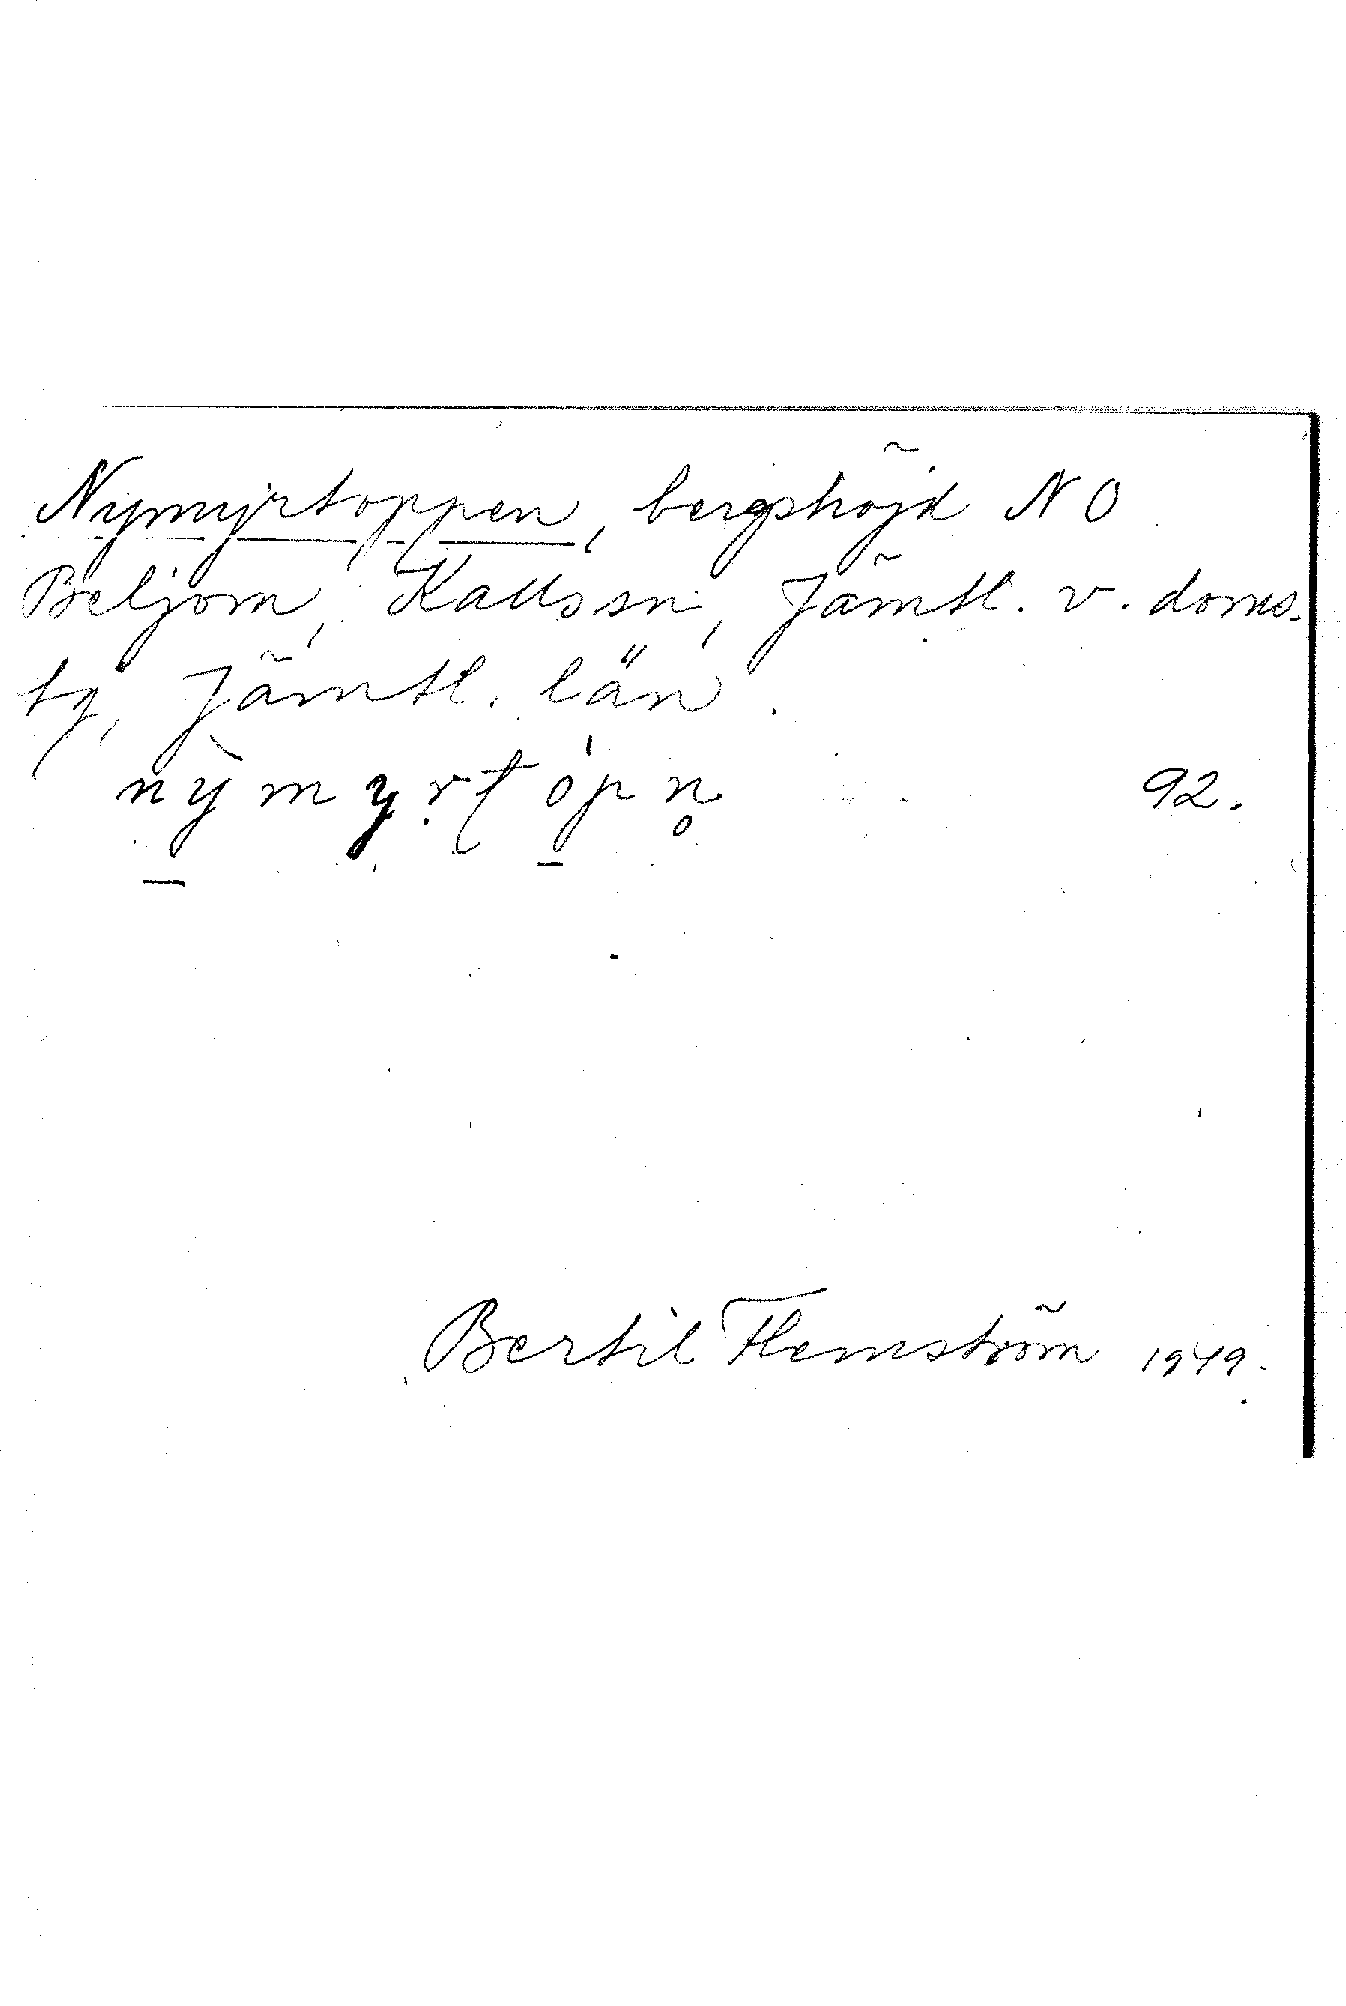 Nymyrtoppen, bergshöjd NO
Beljom, Kallssn, Jämtl. v. doms.
tg, Jämtl. län.
nỳmyrtópn̥ 92.
Bertil Flemström 1949.